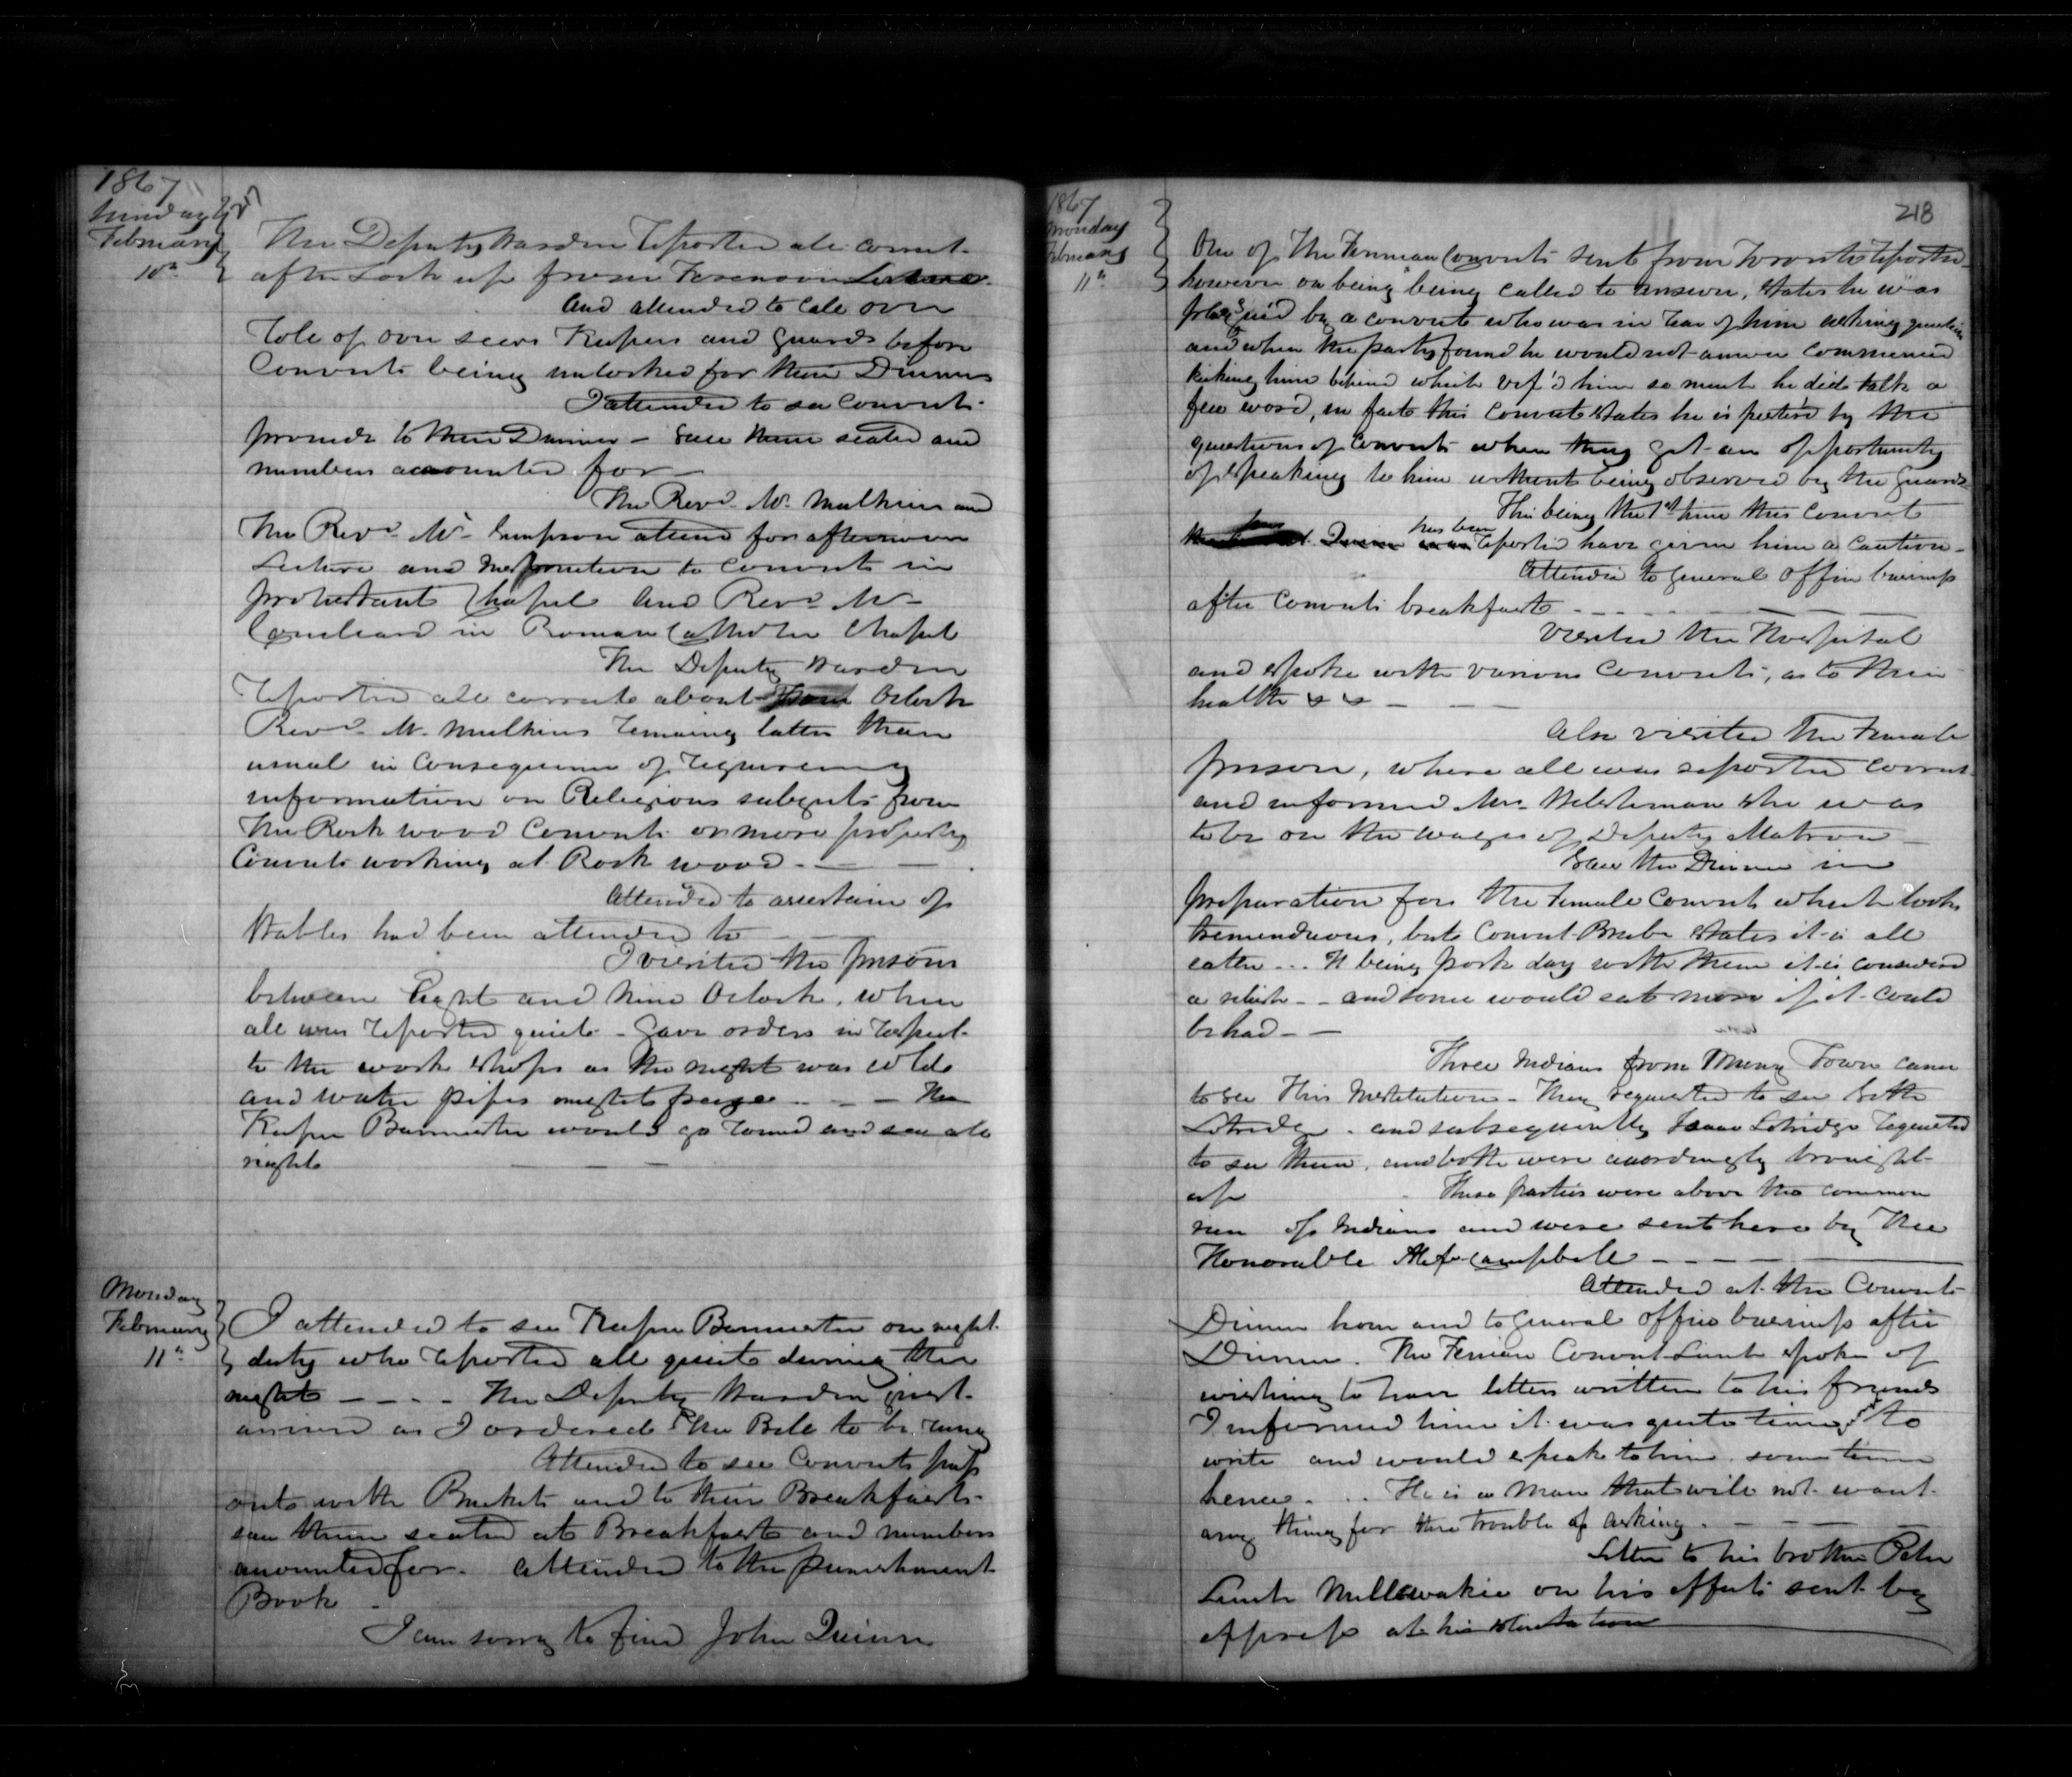 1867
Sunday
February
10th
The Deputy Warden reported all correct
after Lock up from Forenoon Lecture
and attended to call over
role of over seers Keepers and Guards before
Convicts being unlocked for their Dinners
I attended to see Convicts
proceed to their Dinner - saw them seated and
numbers accounted for
The Revd Mr Mulkins and
The Revd Mr Simpson attend for afternoon
Lecture and Instruction to Convicts in
protestant Chapel and Revd Mr
in Roman Catholic Chapel
The Deputy Warden
reported all correct about Oclock
Revd Mr Mulkins remaining latter than
usual in consequence of
information on Religious subjects from
The Rock wood Convicts or more properly
Convicts working at Rock wood -
Attended to ascertain if
Stables had been attended to
I visited the prison
between Eight and nine Oclock, when
all was reported quiet - Gave orders in respect
to the work shops as the night was cold
and water pipes might freeze - - - The
Keeper Bannister would go round and see all
right
Monday
February
11th
I attended to see Keeper Bannister on night
duty who reported all quiet during the
night - - - The Deputy Warden just
arrived as I ordered the Bell to be rung
Attended to see Convicts pass
out with Buckets and to their Breakfasts
saw them seated at Breakfast and numbers
accounted for. attended to the punishment
Book
I am sorry to find John Quinn
1867
Monday
February
11th
218
One of the Fennian Convicts sent from Toronto reported
however on being being called to answer, states he was
plagued by a convict who was in rear of him asking questions
and when the party found he would not answer commenced
kicking him behind which vex'd him so much he did talk a
few word, in fact this Convict states he is pester'd by the
questions of Convicts when they get an opportunity
of speaking to him without being observed by the Guards
This being the 1st time this convict
has been reported have given him a caution -
Attended to general office business
after Convicts breakfast - - -
Visited the Hospital
and spoke with various Convicts, as to their
health & & - - -
Also visited the Female
prison, where all was reported correct
and informed Mrs she was
to be on the wages of Deputy Matron
Saw the Dinner in
preparation for the Female Convicts which looks
tremenduous, but Convict states it is all
eatten ... It being pork day with them it is considered
a relish - - and some would eat more if it could
be had - -
Three Indians from Muncy Town came
to see this Institution - They requested to see both
Lotridge - and subsequently Isaac Lotridge requested
to see them, and both were accordingly brought
up These parties were above the common
run of Indians and were sent here by The
Honorable Alexr Campbell - - -
Attended at the Convicts
Dinner hour and to general office business after
Dinner. The Fenian Convict Lynch spoke of
wishing to have letters written to his friends
I informed him it was quite time to
write and would speak to him some time
hence. .. He is a Man that will not want
any thing for the trouble of asking. - - -
Letter to his brother Peter
Lynch Millewakie on his effects sent by
express at his solicitation